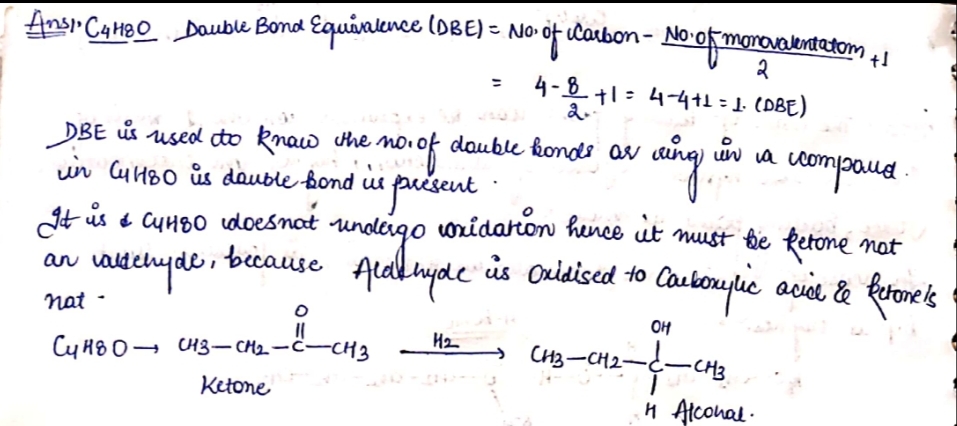 Ans1. C4H8O Double Bond Equivalence (DBE) = No. of Carbon - No. of monovalentatom / 2 +1
= 4 - 8/2 + 1 = 4-4+1 = 1. (DBE)
DBE is used to know the no. of double bonds or ring in a compoud.
in C4H8O is double bond is present.
It is C4H8O doesnot undergo oxidation hence it must be ketone not
an aldehyde, because Aldehyde is Oxidised to Carboxylic acid & ketone is
not.
C4H8O → CH3-CH2-C(=O)-CH3 H2→ CH3-CH2-C(OH)(H)-CH3
Ketone Alcohal.